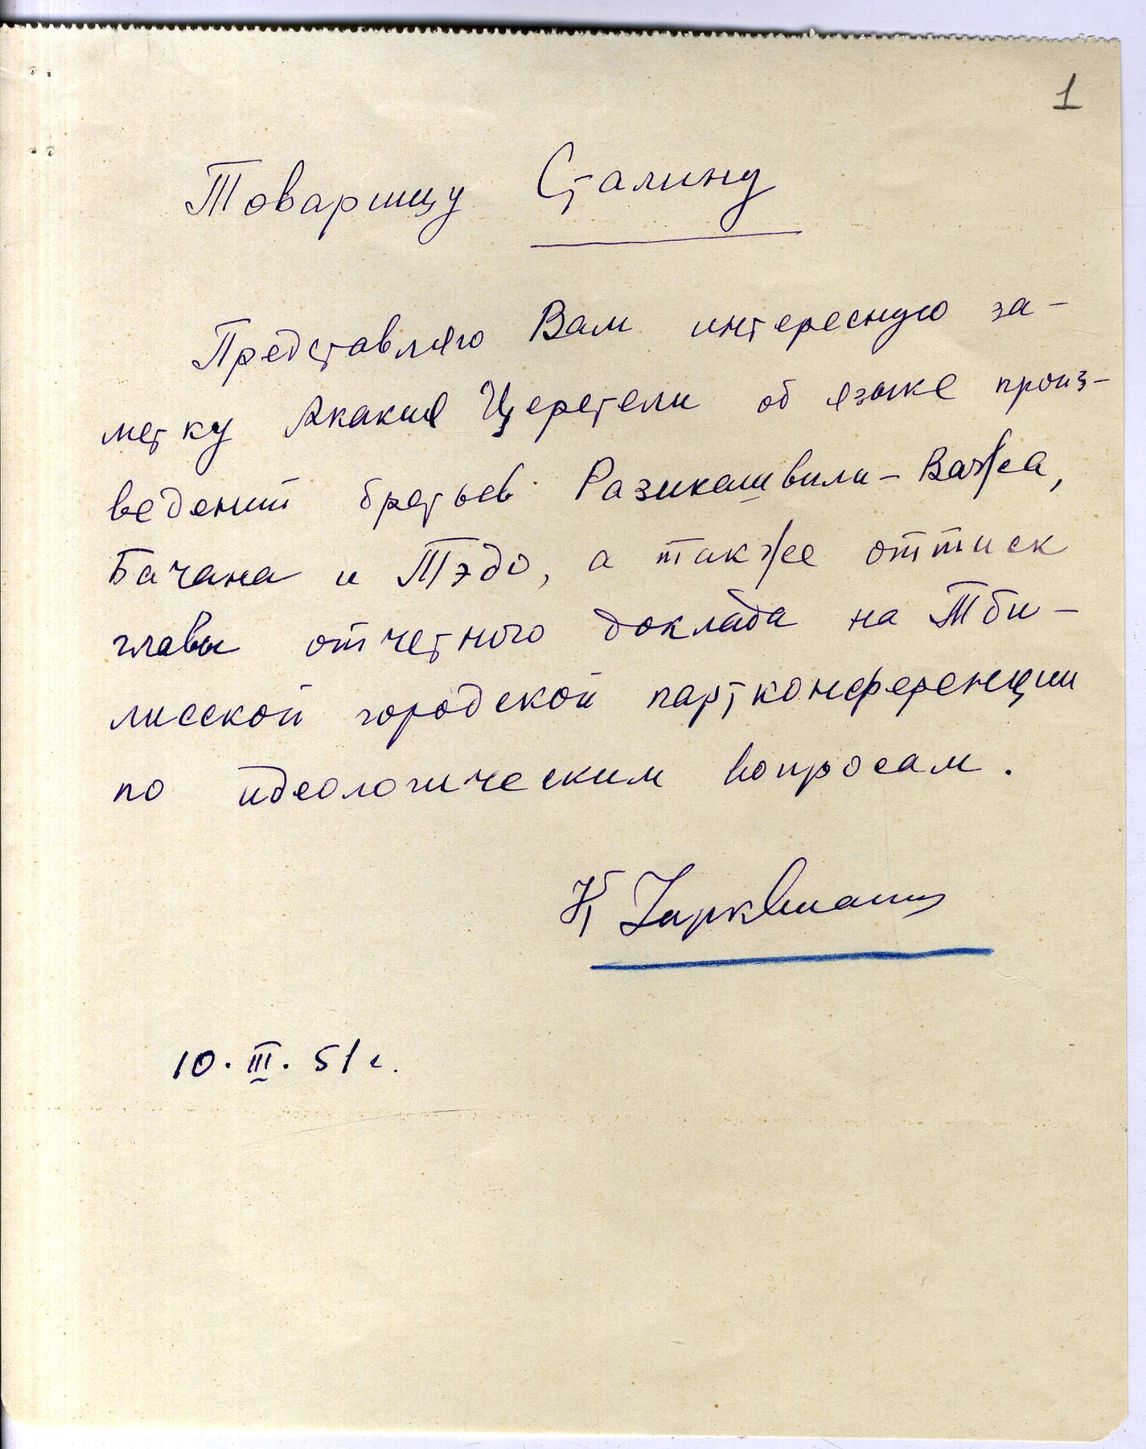 1
Товарищу Сталину
Представляю Вам интересную за-
метку Акакия Церетели об языке произ-
ведений братьев Разикашвили - Важа,
Бачана и Тэдо, а также оттиск
главы отчетного доклада на Тби-
лисской городской партконференции
по идеологическим вопросам.
К Чарквиани
10. III. 51 г.